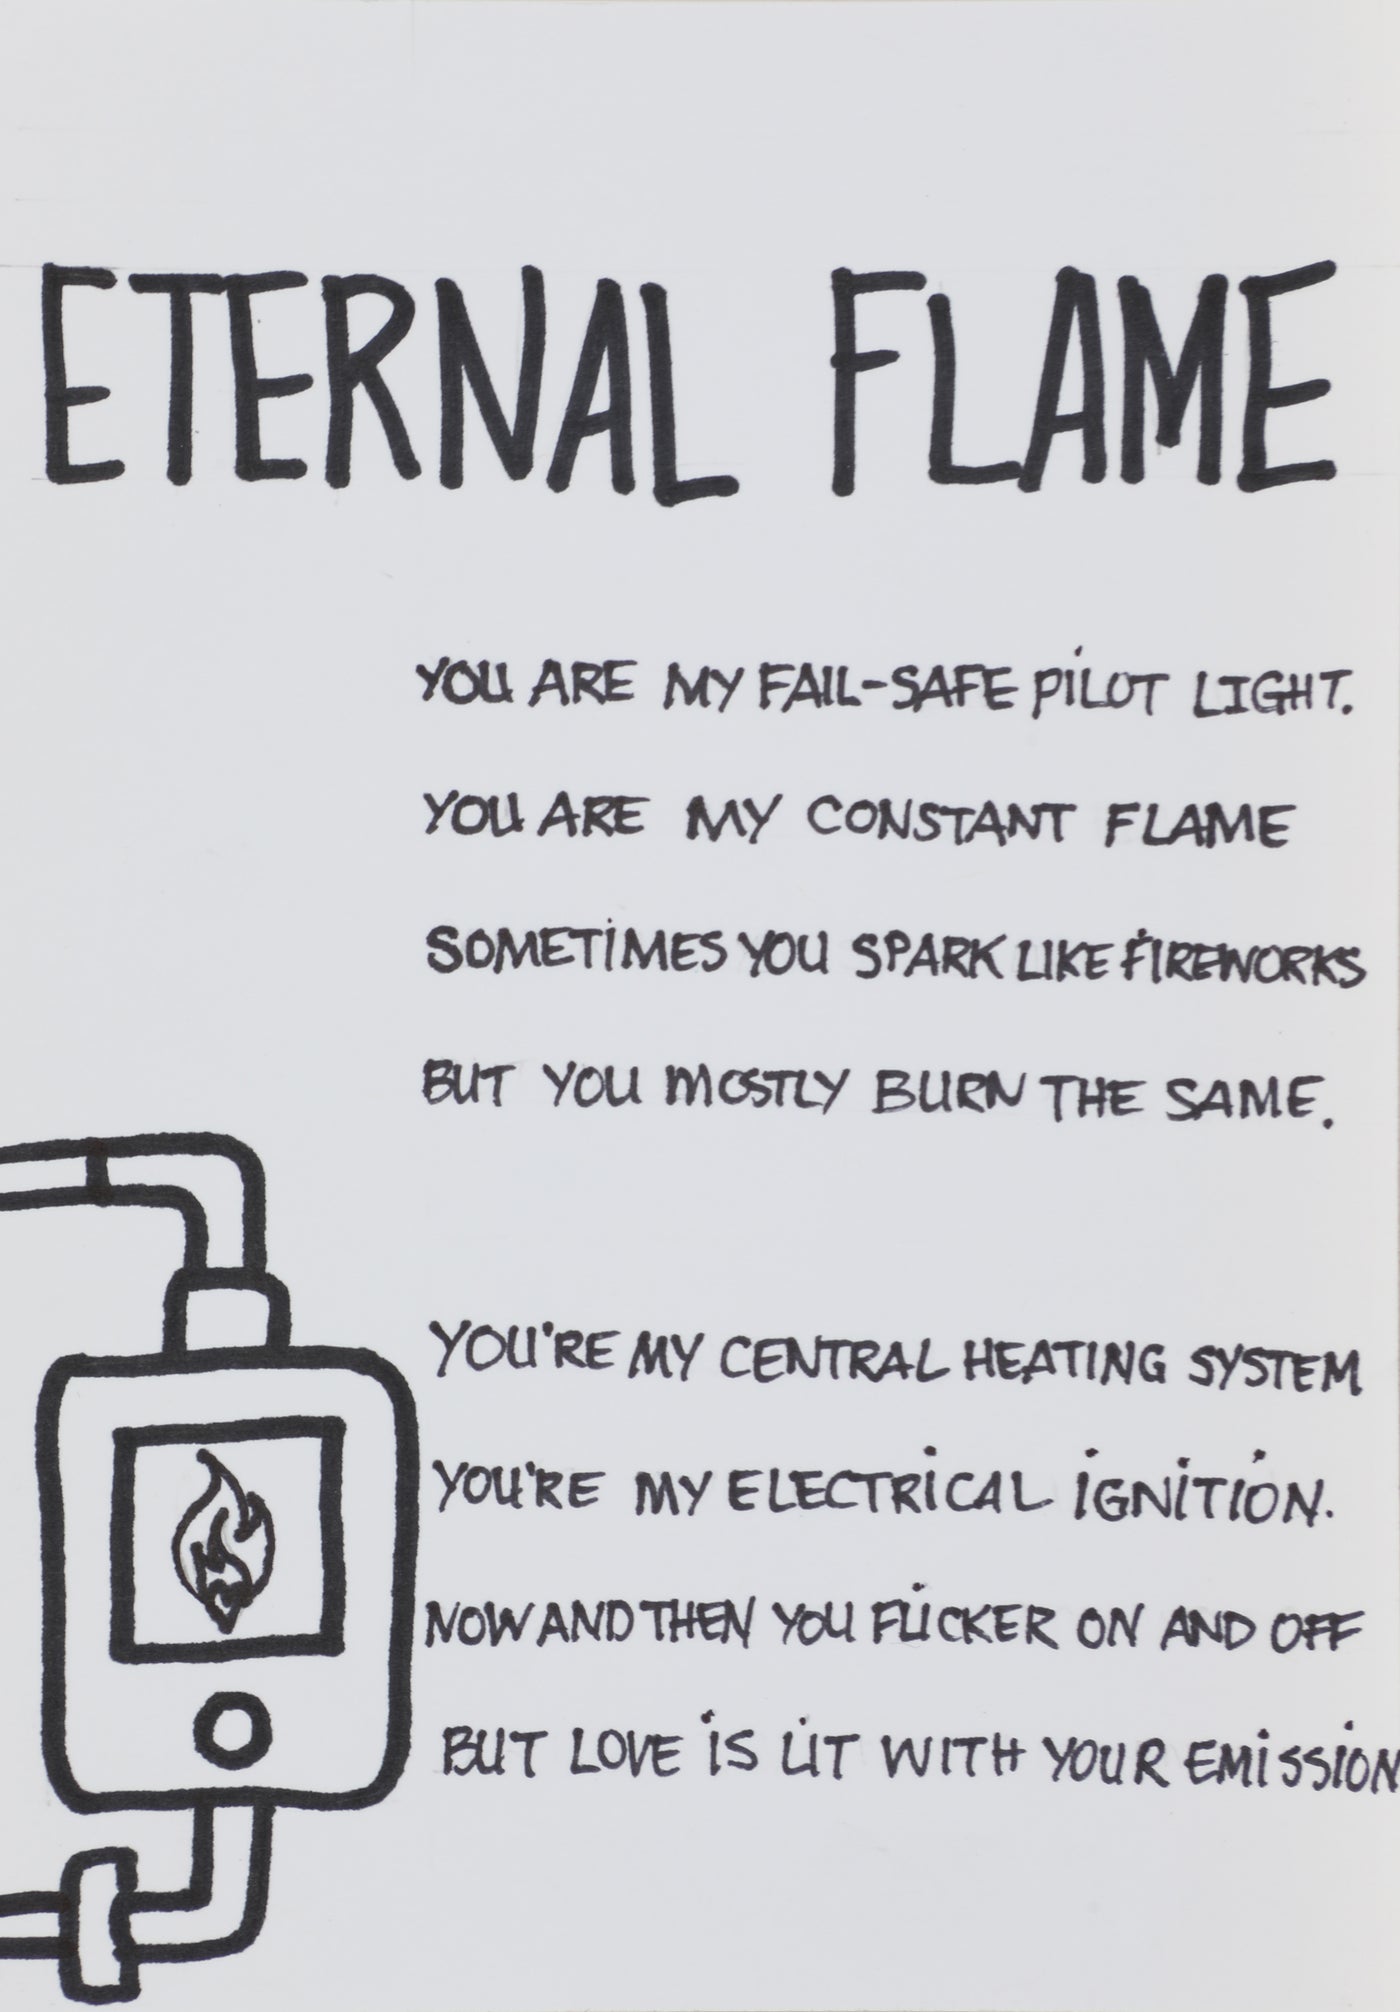 ETERNAL FLAME
YOU ARE MY FAIL-SAFE PILOT LIGHT.
YOU ARE MY CONSTANT FLAME
SOMETIMES YOU SPARK LIKE FIREWORKS
BUT YOU MOSTLY BURN THE SAME.
YOU'RE MY CENTRAL HEATING SYSTEM
YOU'RE MY ELECTRICAL IGNITION.
NOW AND THEN YOU FLICKER ON AND OFF
BUT LOVE IS LIT WITH YOUR EMISSION